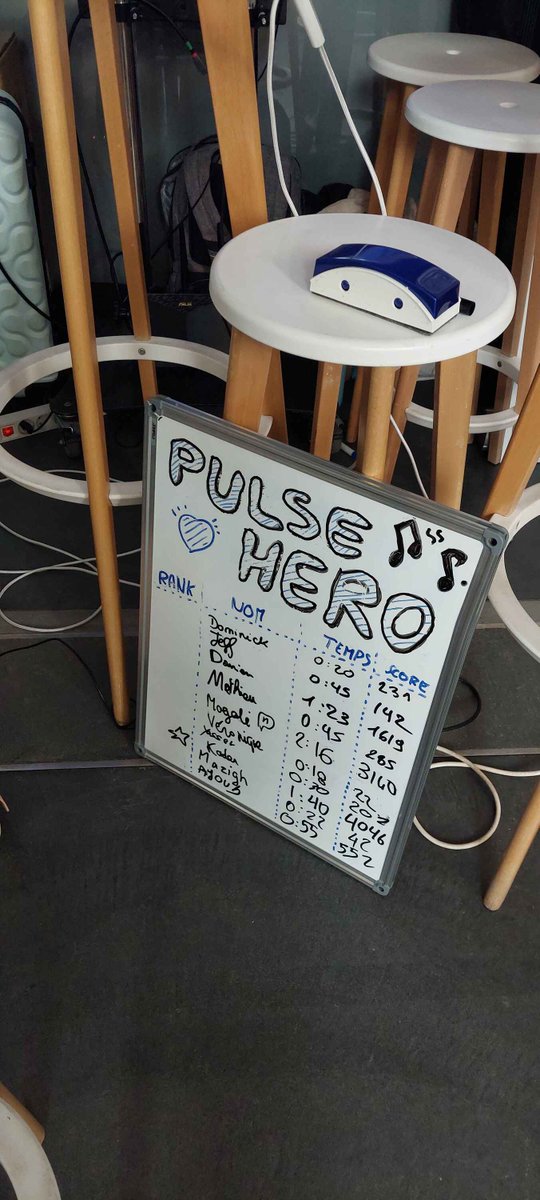 PULSE
HERO
RANK NOM TEMPS SCORE
Dominick 0:20 231
Jeff 0:45 142
Damien 1:23 1619
Mathieu 0:45 285
Magali 2:16 3160
Véronique 0:18 22
0:30
1:40 4046
Mazigh 0:22 42
Ayoub 0:55 552